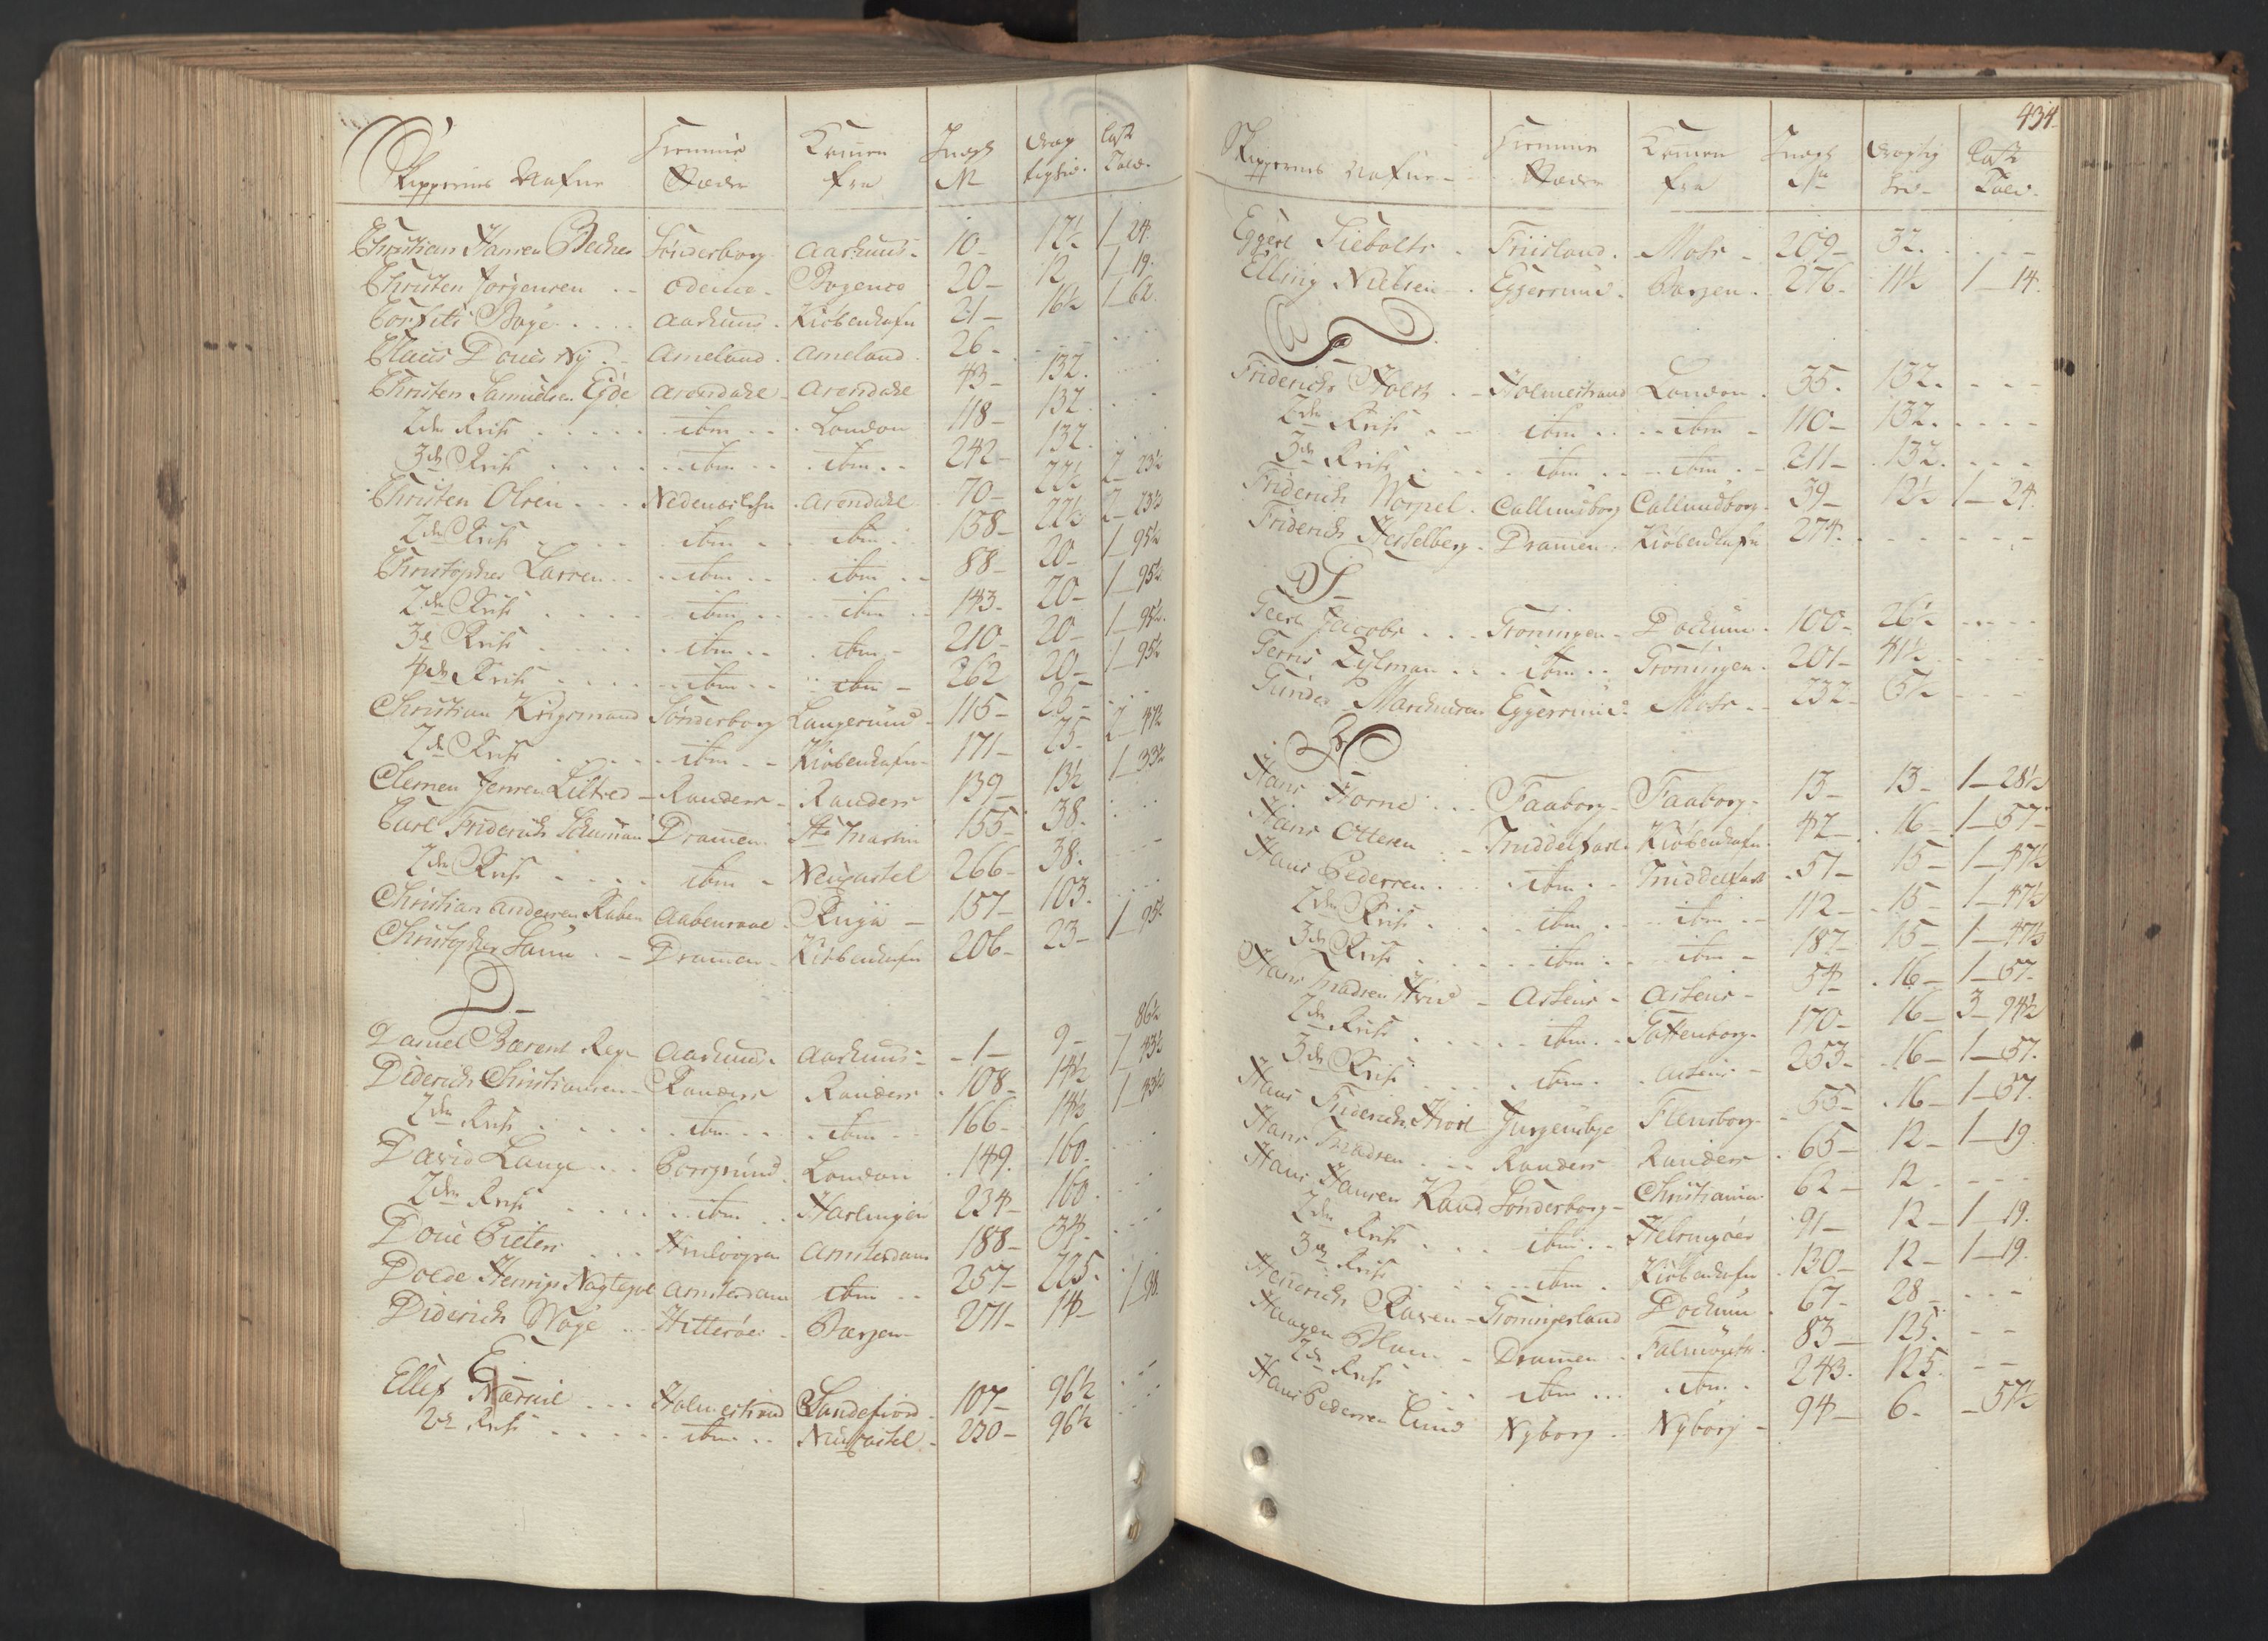 Skippernes Nafne Hiemme Stæder Kommen fra Indgl No Dræg tighed. Last Told.
Christian Hansen Becker Sønderborg Aarhuus 10 12½ 1 24
Christen Jörgensen Odense Bogense 20 12 1 19
Corfits Boye Aarhuus Kiöbenhafn 21 16½ 1 62
Claus Doues Nÿ Ameland Ameland 26
Christen Samuelsen Eÿde Arendahl Arendahl 43 132
2den Reise ibm London 118 132
3de Reise ibm ibm 242 132
Christen Olsen Arendahl 70 22½ 2 23½
2den Reise ibm ibm 158 22½ 2 23½
Christopher Larsen ibm ibm 88 20 1 95½
2den Reise ibm ibm 143 20 1 95½
3de Reise ibm ibm 210 20 1 95½
4de Reise ibm ibm 262 20 1 95½
Christian Krigsmand Sønderborg Langesund 115 25
2de Reise ibm Kiöbenhafn 171 25 2 47½
Clemen Jensen Randers Randers 139 13½ 1 33½
Carl Friderich Schuman Dramen St Martin 155 38
2den Reise ibm Neucastel 266 38
Christian Andersen Raben Aabenraae Riga 157 103
Christopher Dramen Kiöbenhafn 206 23 1 95½
D
Daniel Børent Aarhuus Aarhuus 1 9 86½
Diderich Christiansen Randers Randers 108 14½ 1 43½
2den Reise ibm ibm 166 14½ 1 43½
David Lange Porsgrund London 149 160
2den Reise ibm Harlingen 234 160
Doue Pieters Hindeloopen Amsterdam 188 34
Doede Henrips Nagtegal Amsterdam ibm 257 225
Diderich Wage Hitteröe Bergen 271 14 1 38
E
Ellef Holmestrand Sandefiord 107 96½
2de Reise ibm Neucastel 220 96½
434
Skippernes Nafne Hiemme Stæder Kommen fra Indgl No Drægtig hed Last Told.
Eggert Siebolts Friisland Moss 209 32
Elling Nielsen Eggersund Bergen 276 11½ 1 14
F
Friderich Holst Holmestrand London 35 132
2den Reise ibm ibm 110 132
3de Reise ibm ibm 211 132
Friderich Worpel Callundborg Callundborg 39 12½ 1 24
Friderich Hesselberg Dramen Kiöbenhafn 274
G
Geert Jacobs Groningen Dockum 100 26½
Gerrit Zÿlman ibm Groningen 201 41½
Gunder Marcussen Eggersund Moss 232 5½
H
Hans Horne Faaborg Faaborg 13 13 1 28½
Hans Ottesen Middelfart Kiöbenhafn 42 16 1 57
Hans Pedersen ibm Middelfart 51 15 1 47½
2den Reise ibm ibm 112 15 1 47½
3de Reise ibm ibm 187 15 1 47½
Hans Madsen Assens Assens 54 16 1 57
2den Reise ibm Gottenborg 170 16 3 94½
3de Reise ibm Assens 253 16 1 57
Hans Friderich Hiort Jurgensbye Flensborg 55 16 1 57
Hans Madsen Randers Randers 65 12 1 19
Hans Hansen Sønderborg Christiania 62 12
2den Reise ibm Helsingöer 91 12 1 19
3de Reise ibm Kiöbenhafn 130 12 1 19
Henrich Raven Groningerland Dockum 67 28
Haagen Blom Dramen Falmouth 83 125
2de Reise ibm ibm 243 125
Hans Pedersen Lund Nÿborg Nÿborg 94 6 57½